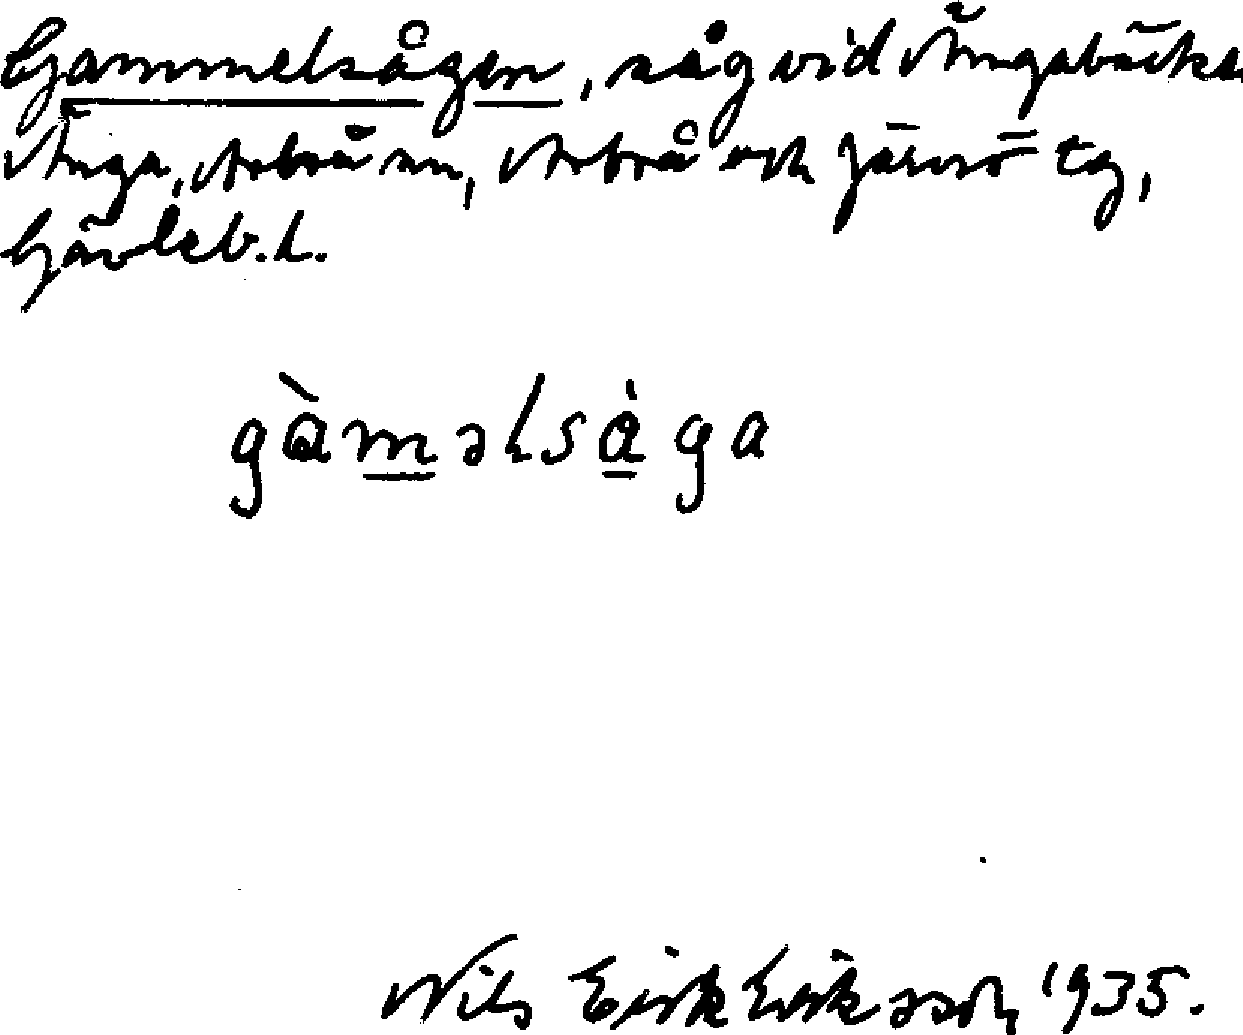 Gammelsågen, såg vid Ängabäcken
Änga, Arbrå sn, Arbrå och Järvsö tg,
Gävleb. l.
gàməlsåga
Nils Erik Eriksson 1935.